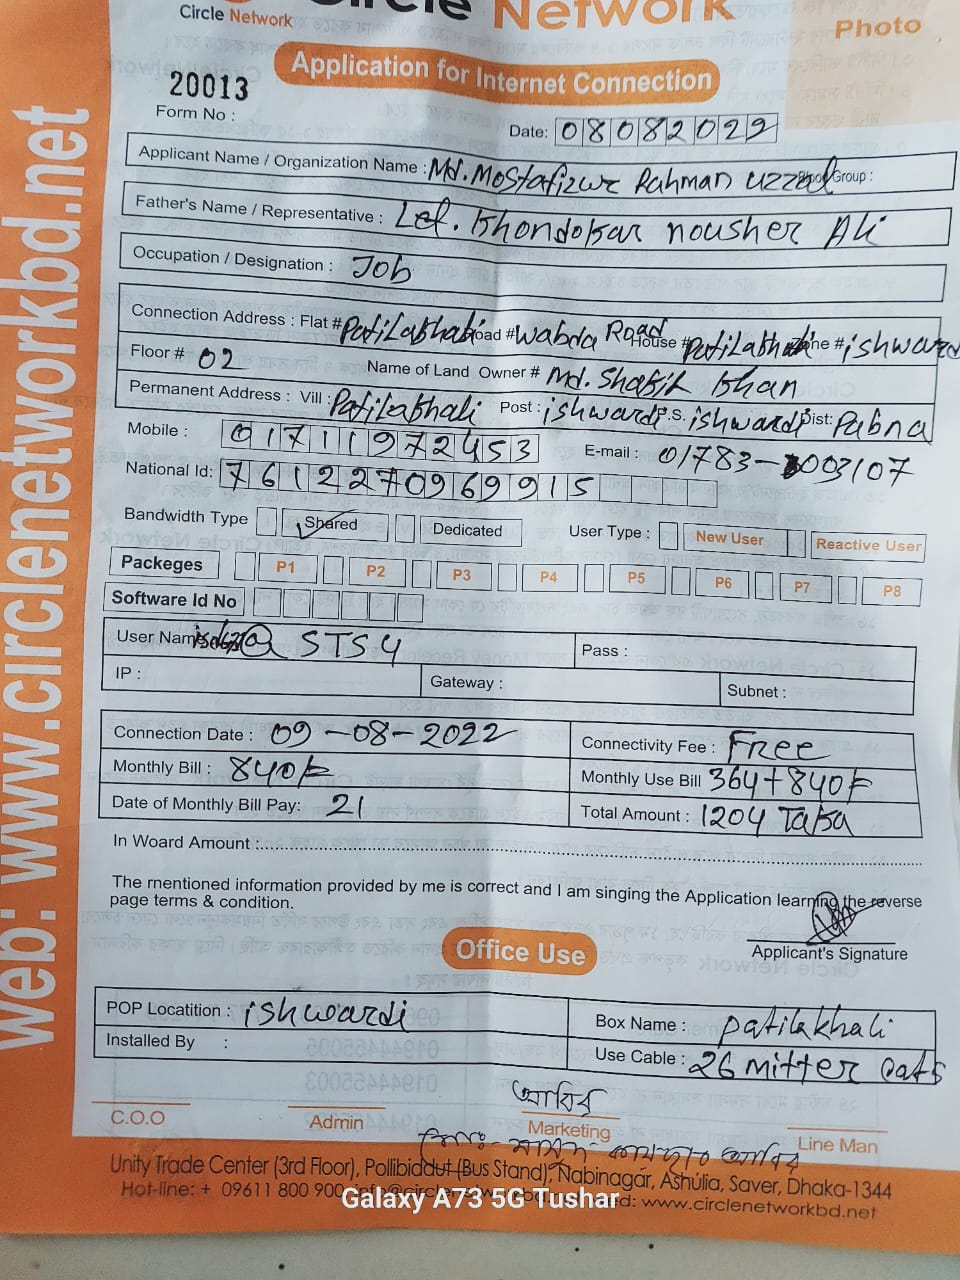 Circle Network
Circle Network
Photo
Application for Internet Connection
20013
Form No :
Date: 08082022
Applicant Name / Organization Name : Md. Mostafizur Rahman uzzal Blood Group :
Father's Name / Representative : Lef. Khondokar nousher Ali
Occupation / Designation : Job
Connection Address : Flat # Patilakhali Road # Wabda Road House # Patilakhali Zone # ishwardi
Floor # 02 Name of Land Owner # Md. Shafik khan
Permanent Address : Vill : Patilakhali Post : ishwardi P.S. ishwardi Dist: Pabna
Mobile : 01711972453 E-mail : 01783-003107
National Id: 7612270969915
Bandwidth Type Shared Dedicated User Type : New User Reactive User
Packeges P1 P2 P3 P4 P5 P6 P7 P8
Software Id No
User Name @ STS4 Pass :
IP : Gateway : Subnet :
Connection Date : 09-08-2022 Connectivity Fee : Free
Monthly Bill : 840/= Monthly Use Bill 364+840/=
Date of Monthly Bill Pay: 21 Total Amount : 1204 Taka
In Woard Amount :
The rnentioned information provided by me is correct and I am singing the Application learning the reverse
page terms & condition.
Applicant's Signature
Office Use
POP Locatition : ishwardi Box Name : patilakhali
Installed By : Use Cable : 26 mitter cat5
আবির
C.O.O Admin Marketing Line Man
Unity Trade Center (3rd Floor), Pollibiddut (Bus Stand), Nabinagar, Ashulia, Saver, Dhaka-1344
Hot-line: + 09611 800 900 www.circlenetworkbd.net
Galaxy A73 5G Tushar
web: www.circlenetworkbd.net